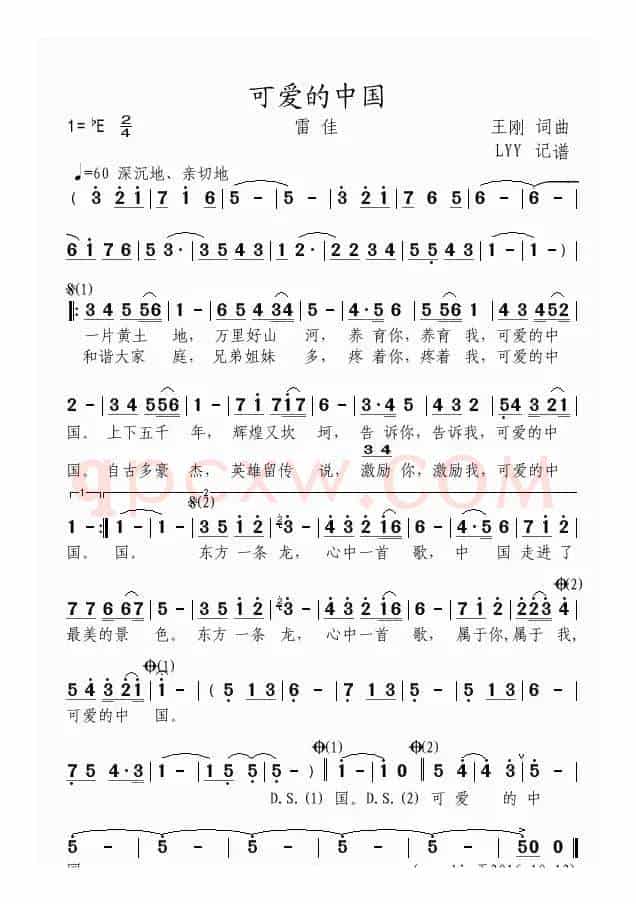 可爱的中国
1=♭E 2/4 雷佳 王刚 词曲
LYY 记谱
♩=60 深沉地、亲切地
( 3 2 1 | 7 1 6 | 5 - | 5 - | 3 2 1 | 7 6 5 | 6 - | 6 -
6 1 7 6 | 5 3· | 3 5 4 3 | 1 2· | 2 2 3 4 | 5 5 4 3 | 1 - | 1 - )
𝄋(1)
‖: 3 4 5 5 6 | 1 - | 6 5 4 3 4 | 5 - | 4·5 6 | 5 5 6 1 | 4 3 4 5 2
一片黄土 地, 万里好山 河, 养 育你, 养育 我, 可爱的中
和谐大家 庭, 兄弟姐妹 多, 疼 着你, 疼着 我, 可爱的中
2 - | 3 4 5 5 6 | 1 - | 7 1 7 1 7 | 6 - | 3·4 5 | 3 4 1 2 | 5 4 3 2
国。 上下五千 年, 辉煌又坎 坷, 告 诉你, 告诉我, 可爱的中
3 4
国。 自古多豪 杰, 英雄留传 说, 激励 你, 激励我, 可爱的中
qpcxw.COM
1 2 𝄋(2)
1 - :‖ 1 - | 1 - | 3 5 1 2 | 3 - | 4 3 2 1 6 | 6 - | 4·5 6 | 7 1 2
国。 国。 东方 一条 龙, 心中一首 歌, 中 国 走进了
𝄌(2)
7 7 6 6 7 | 5 - | 3 5 1 2 | 3 - | 4 3 2 1 6 | 6 - | 1 2 1 2 | 2 2 3 4
最美的景 色。 东方 一条 龙, 心中一首 歌, 属于你, 属于 我,
𝄌(1)
5 4 3 2 1 | 1 - | ( 5 1 3 | 6 - | 7 1 3 | 5 - | 5 1 3 | 6 -
可爱的中 国。
𝄌(1) 𝄌(2)
7 5 4·3 | 1 - | 1 5 5 | 5 - | 5 - ) ‖ 1 - | 1 0 ‖ 5 4 | 4 3 | 5 -
D.S.(1) 国。D.S.(2) 可 爱 的 中
5 - | 5 - | 5 - | 5 - | 5 - | 50 0 ‖